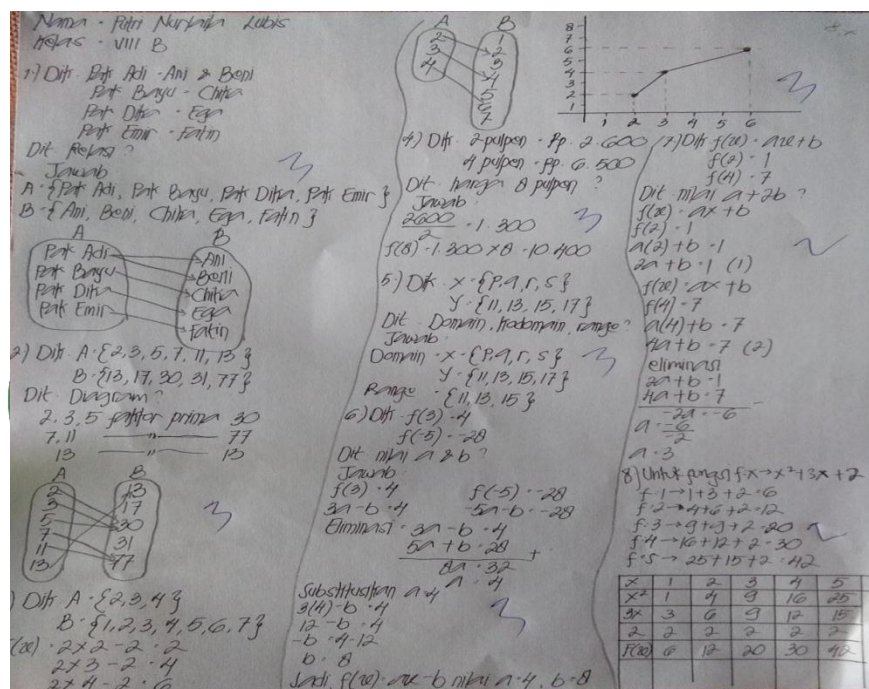 Nama : Putri Nurlaila Lubis
Kelas : VIII B
1) Dik : Pak Adi - Ani & Beni
Pak Bayu - Chika
Pak Dika - Ega
Pak Emir - Fatin
Dit : Relasi ?
Jawab
A = {Pak Adi, Pak Bayu, Pak Dika, Pak Emir}
B = {Ani, Beni, Chika, Ega, Fatin}
A B
Pak Adi Ani
Pak Bayu Beni
Pak Dika Chika
Pak Emir Ega
Fatin
2) Dik : A = {2,3,5,7,11,13}
B = {13,17,30,31,77}
Dit : Diagram ?
2,3,5 faktor prima 30
7,11 —— " —— 77
13 —— " —— 13
A B
2 13
3 17
5 30
7 31
11 77
13
) Dik A = {2,3,4}
B = {1,2,3,4,5,6,7}
(x) = 2x2-2 = 2
2x3-2 = 4
2x4-2 = 6
A B
2 1
3 2
4 3
4
5
6
7
8
7
6
5
4
3
2
1
1 2 3 4 5 6
4) Dik : 2 pulpen = Rp. 2.600
4 pulpen = Rp. 6.500
Dit : harga 8 pulpen ?
Jawab :
2600
2 = 1.300
f(8) = 1.300 x 8 = 10.400
5) Dik : x = {p,q,r,s}
y = {11,13,15,17}
Dit : Domain, kodomain, range ?
Jawab :
Domain = x = {p,q,r,s}
y = {11,13,15,17}
Range = {11,13,15}
6) Dik : f(3) = 4
f(-5) = -28
Dit nilai a & b ?
Jawab :
f(3) = 4 f(-5) = -28
3a-b = 4 -5a-b = -28
Eliminasi = 3a-b = 4
5a+b = 28 +
8a = 32
a = 4
Substitusikan a=4
3(4)-b = 4
12-b = 4
-b = 4-12
b = 8
Jadi f(x) = ax-b nilai a=4, b=8
7) Dik f(x) = ax+b
f(2) = 1
f(4) = 7
Dit nilai a+2b ?
f(x) = ax+b
f(2) = 1
a(2)+b = 1
2a+b = 1 (1)
f(x) = ax+b
f(4) = 7
a(4)+b = 7
4a+b = 7 (2)
eliminasi
2a+b = 1
4a+b = 7 -
-2a = -6
a = -6
-2
a = 3
8) Untuk fungsi f:x→x²+3x+2
f:1→1+3+2=6
f:2→4+6+2=12
f:3→9+9+2=20
f:4→16+12+2=30
f:5→25+15+2=42
x 1 2 3 4 5
x² 1 4 9 16 25
3x 3 6 9 12 15
2 2 2 2 2 2
F(x) 6 12 20 30 42